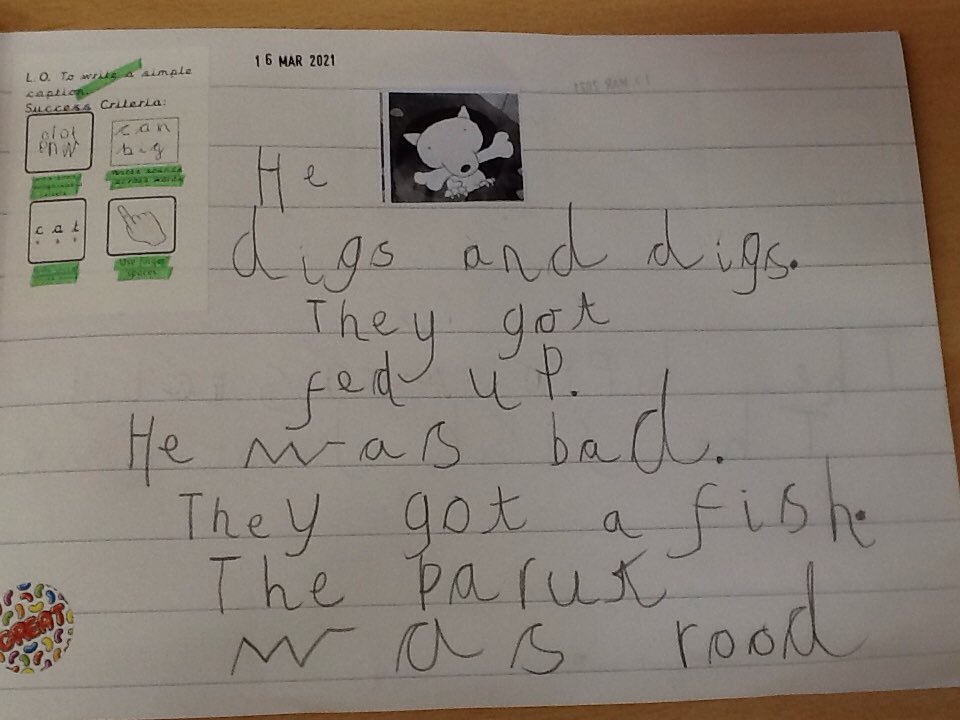 16 MAR 2021
L.O. To write a simple
caption.
Success Criteria:
can
big
cat
use finger
spaces
He
digs and digs.
They got
fed up.
He was bad.
They got a fish.
The parut
was rood
GREAT